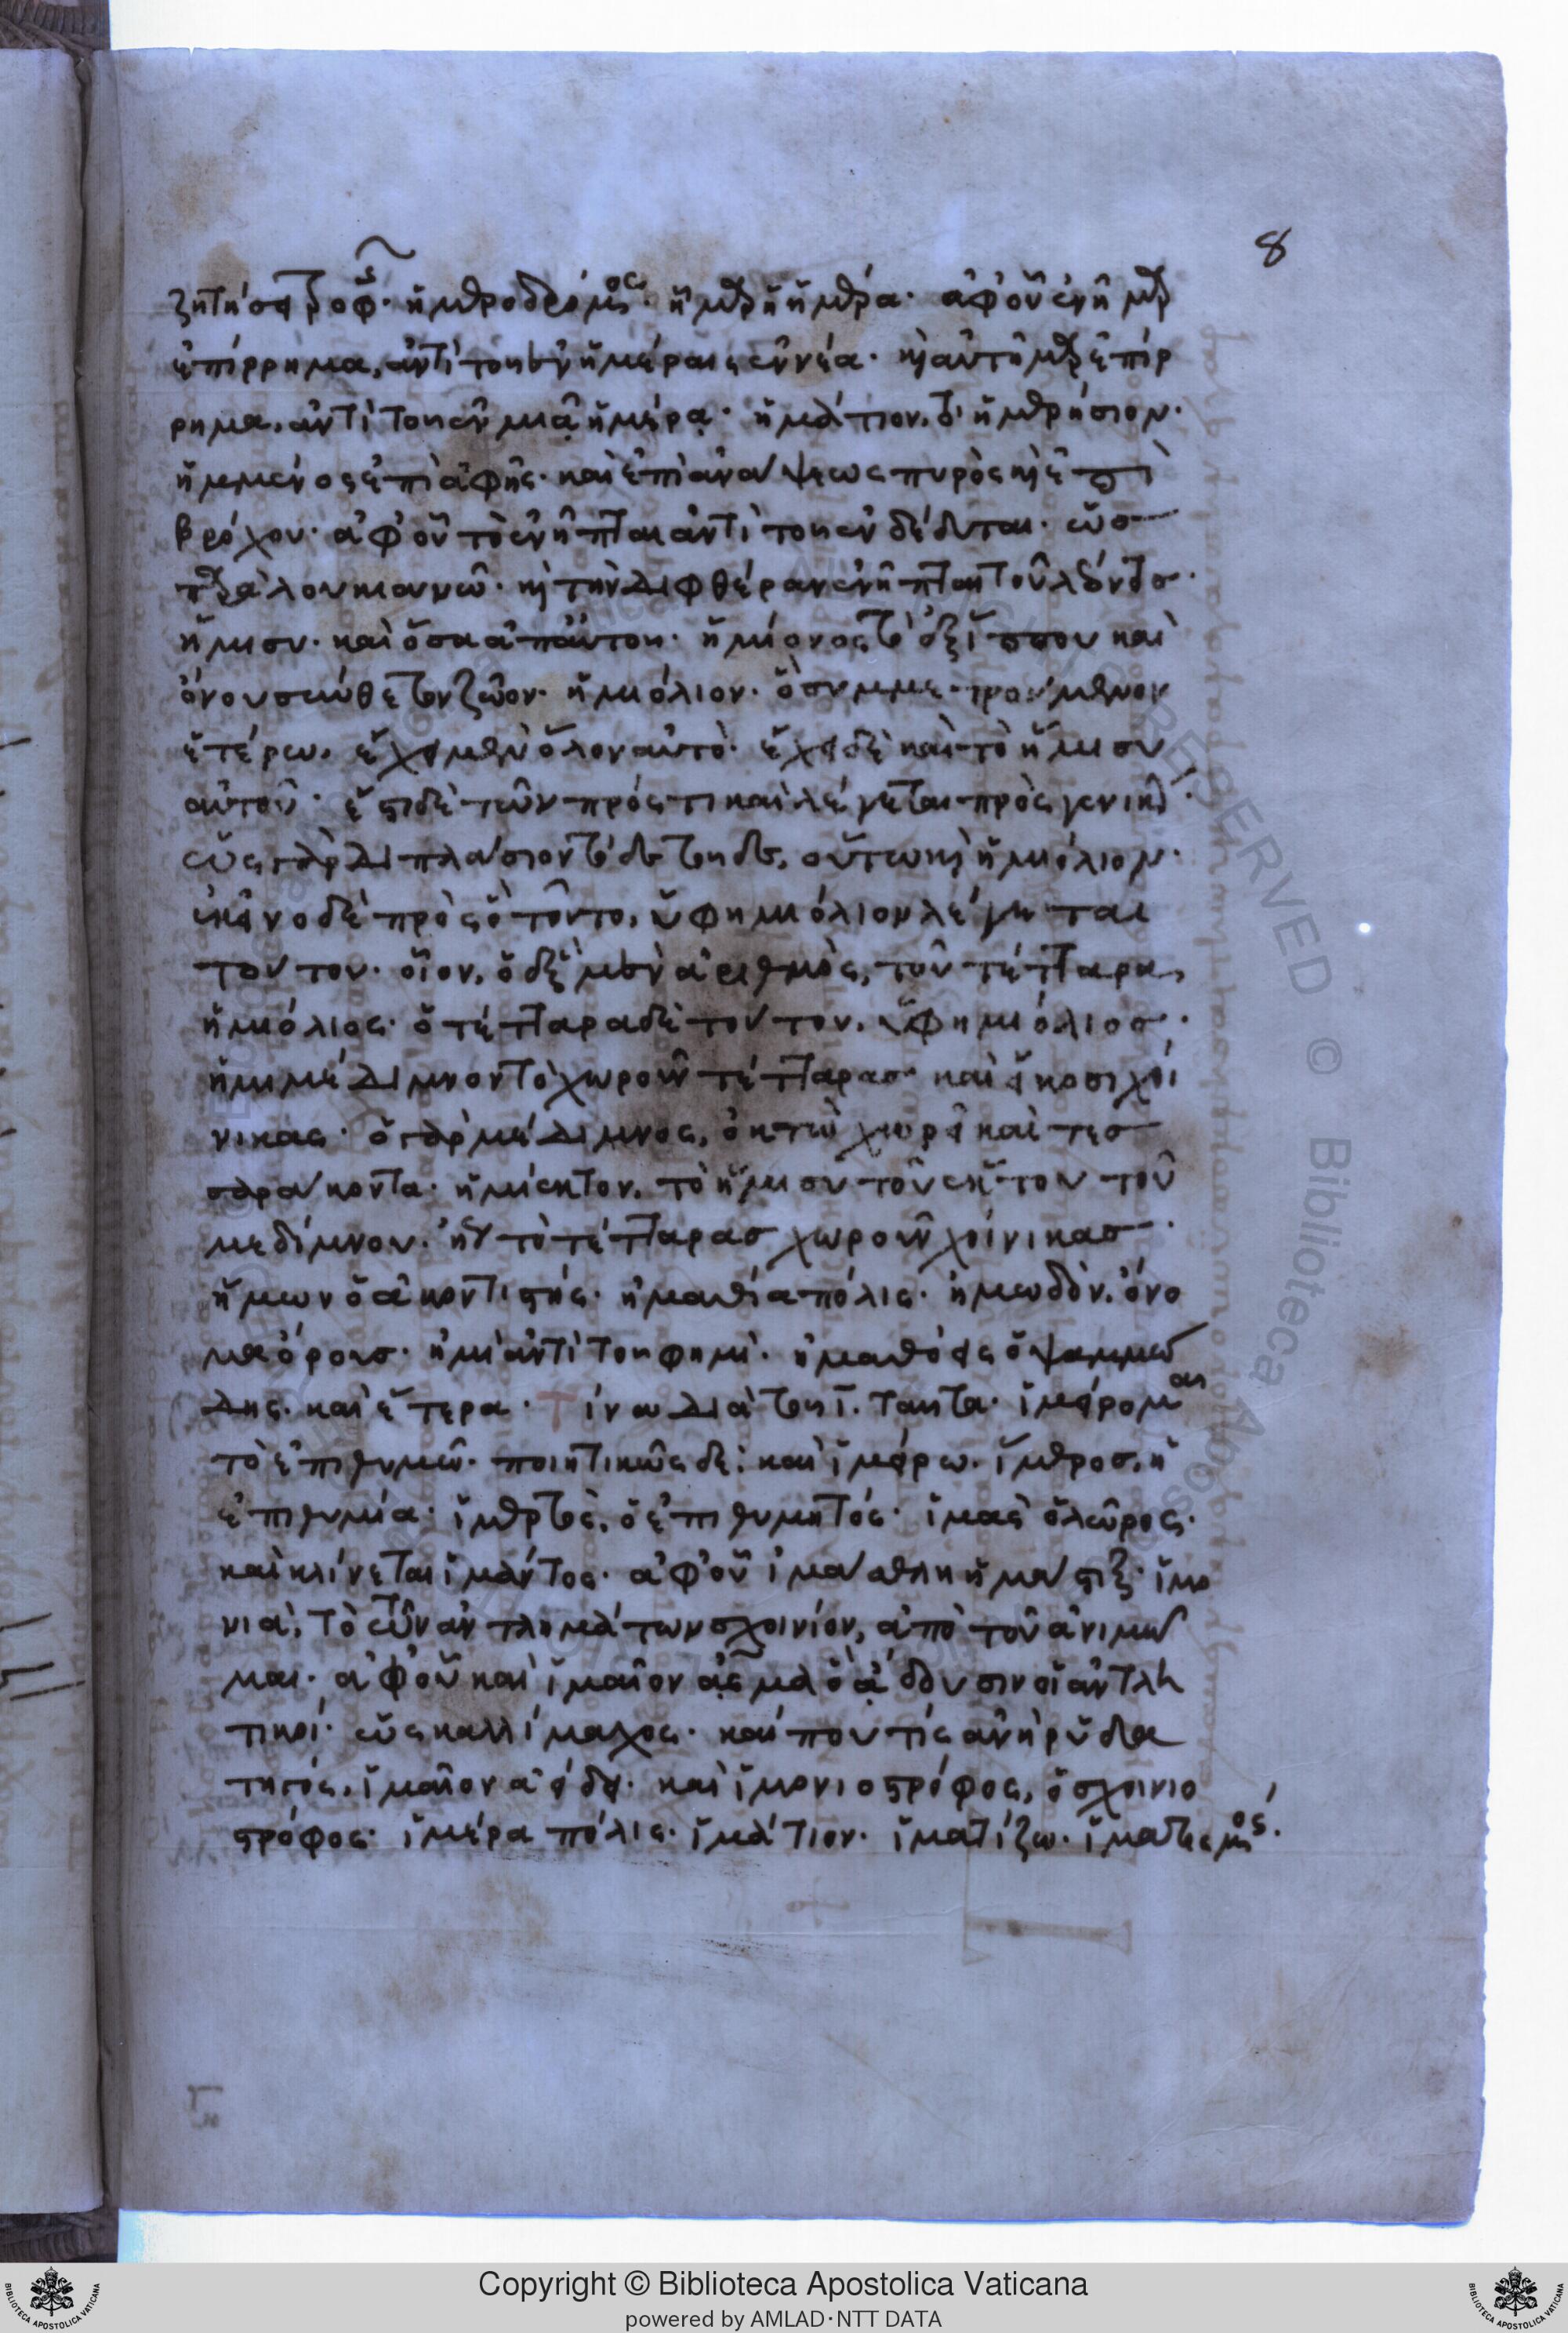 8
ζητήσ ἡμεροδρόμος· ἦμαρ ἡ ἡμέρα· ἀφ' οὗ ἐννῆμαρ
ἐπίρρημα, ἀντὶ τοῦ ἐν ἡμέραις ἐννέα· καὶ αὐτῆμαρ ἐπίρ
ρημα, ἀντὶ τοῦ ἐν μιᾷ ἡμέρᾳ· ἡμάτιον, τὸ ἡμερήσιον·
ἡμμένος ἐπὶ ἁφῆς· καὶ ἐπὶ ἀνάψεως πυρὸς καὶ ἐπὶ
βρόχου· ἀφ' οὗ τὸ ἐνῆπται ἀντὶ τοῦ ἐνδέδυται·
καὶ τὴν διφθέραν ἐνῆπται τοῦ λέοντος·
ἥμισυ· καὶ ὅσα ἀπ' αὐτοῦ· ἡμίονος τὸ ἐξ ἵππου καὶ
ὄνου σύνθετον ζῶον· ἡμιόλιον· ὃ συμμετρούμενον
ἑτέρω, ἔχει μὲν ὅλον αὐτὸ· ἔχει δὲ καὶ τὸ ἥμισυ
αὐτοῦ· ἔστι δὲ τῶν πρός τι καὶ λέγεται πρὸς γενικὴν·
ὡς γὰρ διπλάσιον τόδε τοῦδε, οὕτω καὶ ἡμιόλιον·
ἐκεῖνο δὲ πρὸς ὃ τοῦτο, ὑφημιόλιον λέγεται
τούτου· οἷον, ὁ ἓξ μὲν ἀριθμὸς, τοῦ τέτταρα,
ἡμιόλιος· ὁ τέτταρα δὲ τούτου, ὑφημιόλιος·
ἡμιμέδιμνον τὸ χωροῦν τέτταρας καὶ εἴκοσι χοί
νικας· ὁ γὰρ μέδιμνος, ὀκτὼ χωρεῖ καὶ τεσ
σαράκοντα· ἡμίεκτον, τὸ ἥμισυ τοῦ ἕκτου τοῦ
μεδίμνου· ἤγουν τὸ τέτταρας χωροῦν χοίνικας·
ἥμων ὁ ἀκοντιστής· ἠμαθία πόλις· ἠμωδὸν, ὄνο
μα ὄρους· ἠμὶ ἀντὶ τοῦ φημὶ· ἠμαθόεις ὁ ψαμμώ
δης· καὶ ἕτερα· Τίνα διὰ τοῦ ι· ταῦτα· ἱμείρομαι
τὸ ἐπιθυμῶ· ποιητικῶς δὲ· καὶ ἱμείρω· ἵμερος, ἡ
ἐπιθυμία· ἱμερτὸς, ὁ ἐπιθυμητός· ἱμὰς ὁ λῶρος·
καὶ κλίνεται ἱμάντος· ἀφ' οὗ ἱμάσθλη ἡ μάστιξ· ἱμο
νιὰ, τὸ τῶν ἀντλημάτων σχοινίον, ἀπὸ τοῦ ἀνιμῶ
μαι· ἀφ' οὗ καὶ ἱμαῖον ᾆσμα ὃ ᾄδουσιν οἱ ἀντλη
τικοί· ὡς καλλίμαχος· καί που τις ἀνὴρ ὑδα
τηγός, ἱμαῖον ἀείδει· καὶ ἱμονιοστρόφος, ὁ σχοινιο
στρόφος· ἱμέρα πόλις· ἱμάτιον· ἱματίζω· ἱματισμός·
Copyright © Biblioteca Apostolica Vaticana
powered by AMLAD·NTT DATA